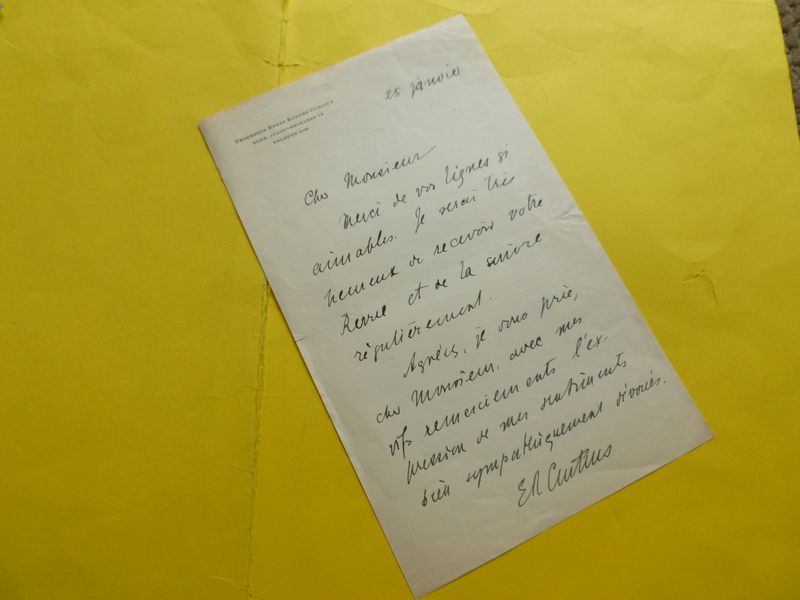 PROFESSOR ERNST ROBERT CURTIUS
BONN, JOACHIMSTRASSE 18
25 janvier
Cher Monsieur
Merci de vos lignes si
aimables. Je serai très
heureux de recevoir votre
Revue et de la suivre
régulièrement.
Agréez, je vous prie,
cher Monsieur, avec mes
vifs remerciements l'ex-
pression de mes sentiments
bien sympathiquement dévoués.
ER Curtius